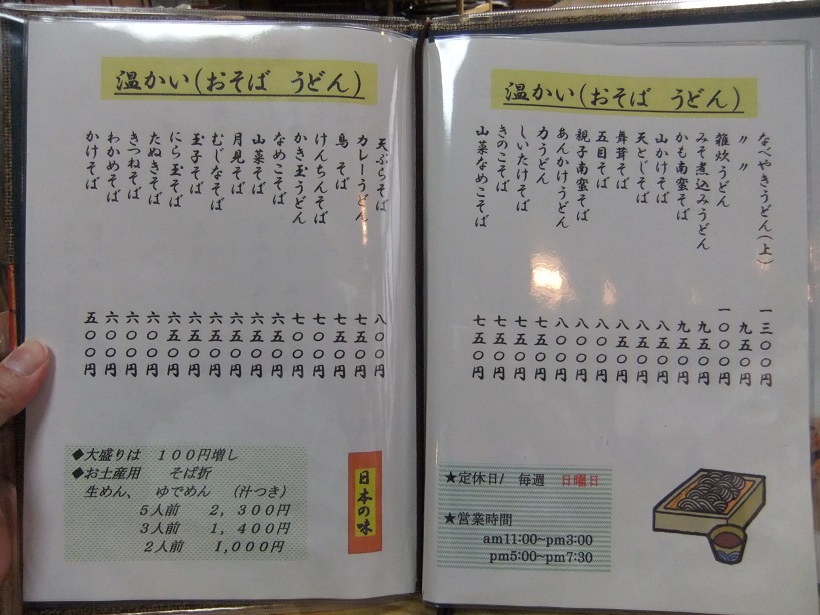 温かい(おそば　うどん)
なべやきうどん(上)　一三〇〇円
〃　〃　九五〇円
雑炊うどん　一〇〇〇円
みそ煮込みうどん　九五〇円
かも南蛮そば　九五〇円
山かけそば　八五〇円
天とじそば　八五〇円
舞茸そば　八五〇円
五目そば　八〇〇円
親子南蛮そば　八〇〇円
あんかけうどん　八〇〇円
力うどん　七五〇円
しいたけそば　七五〇円
きのこそば　七五〇円
山菜なめこそば　七五〇円
★定休日/　毎週　日曜日
★営業時間
am11:00~pm3:00
pm5:00~pm7:30
温かい(おそば　うどん)
天ぷらそば　八〇〇円
カレーうどん　七五〇円
鳥　そば　七五〇円
けんちんそば　七〇〇円
かき玉うどん　七〇〇円
なめこそば　六五〇円
山菜そば　六五〇円
月見そば　六五〇円
むじなそば　六五〇円
玉子そば　六五〇円
にら玉そば　六五〇円
たぬきそば　六〇〇円
きつねそば　六〇〇円
わかめそば　六〇〇円
かけそば　五〇〇円
◆大盛りは　１００円増し
◆お土産用　　そば折
生めん、　ゆでめん　（汁つき）
５人前　２，３００円
３人前　１，４００円
２人前　１,０００円
日本の味